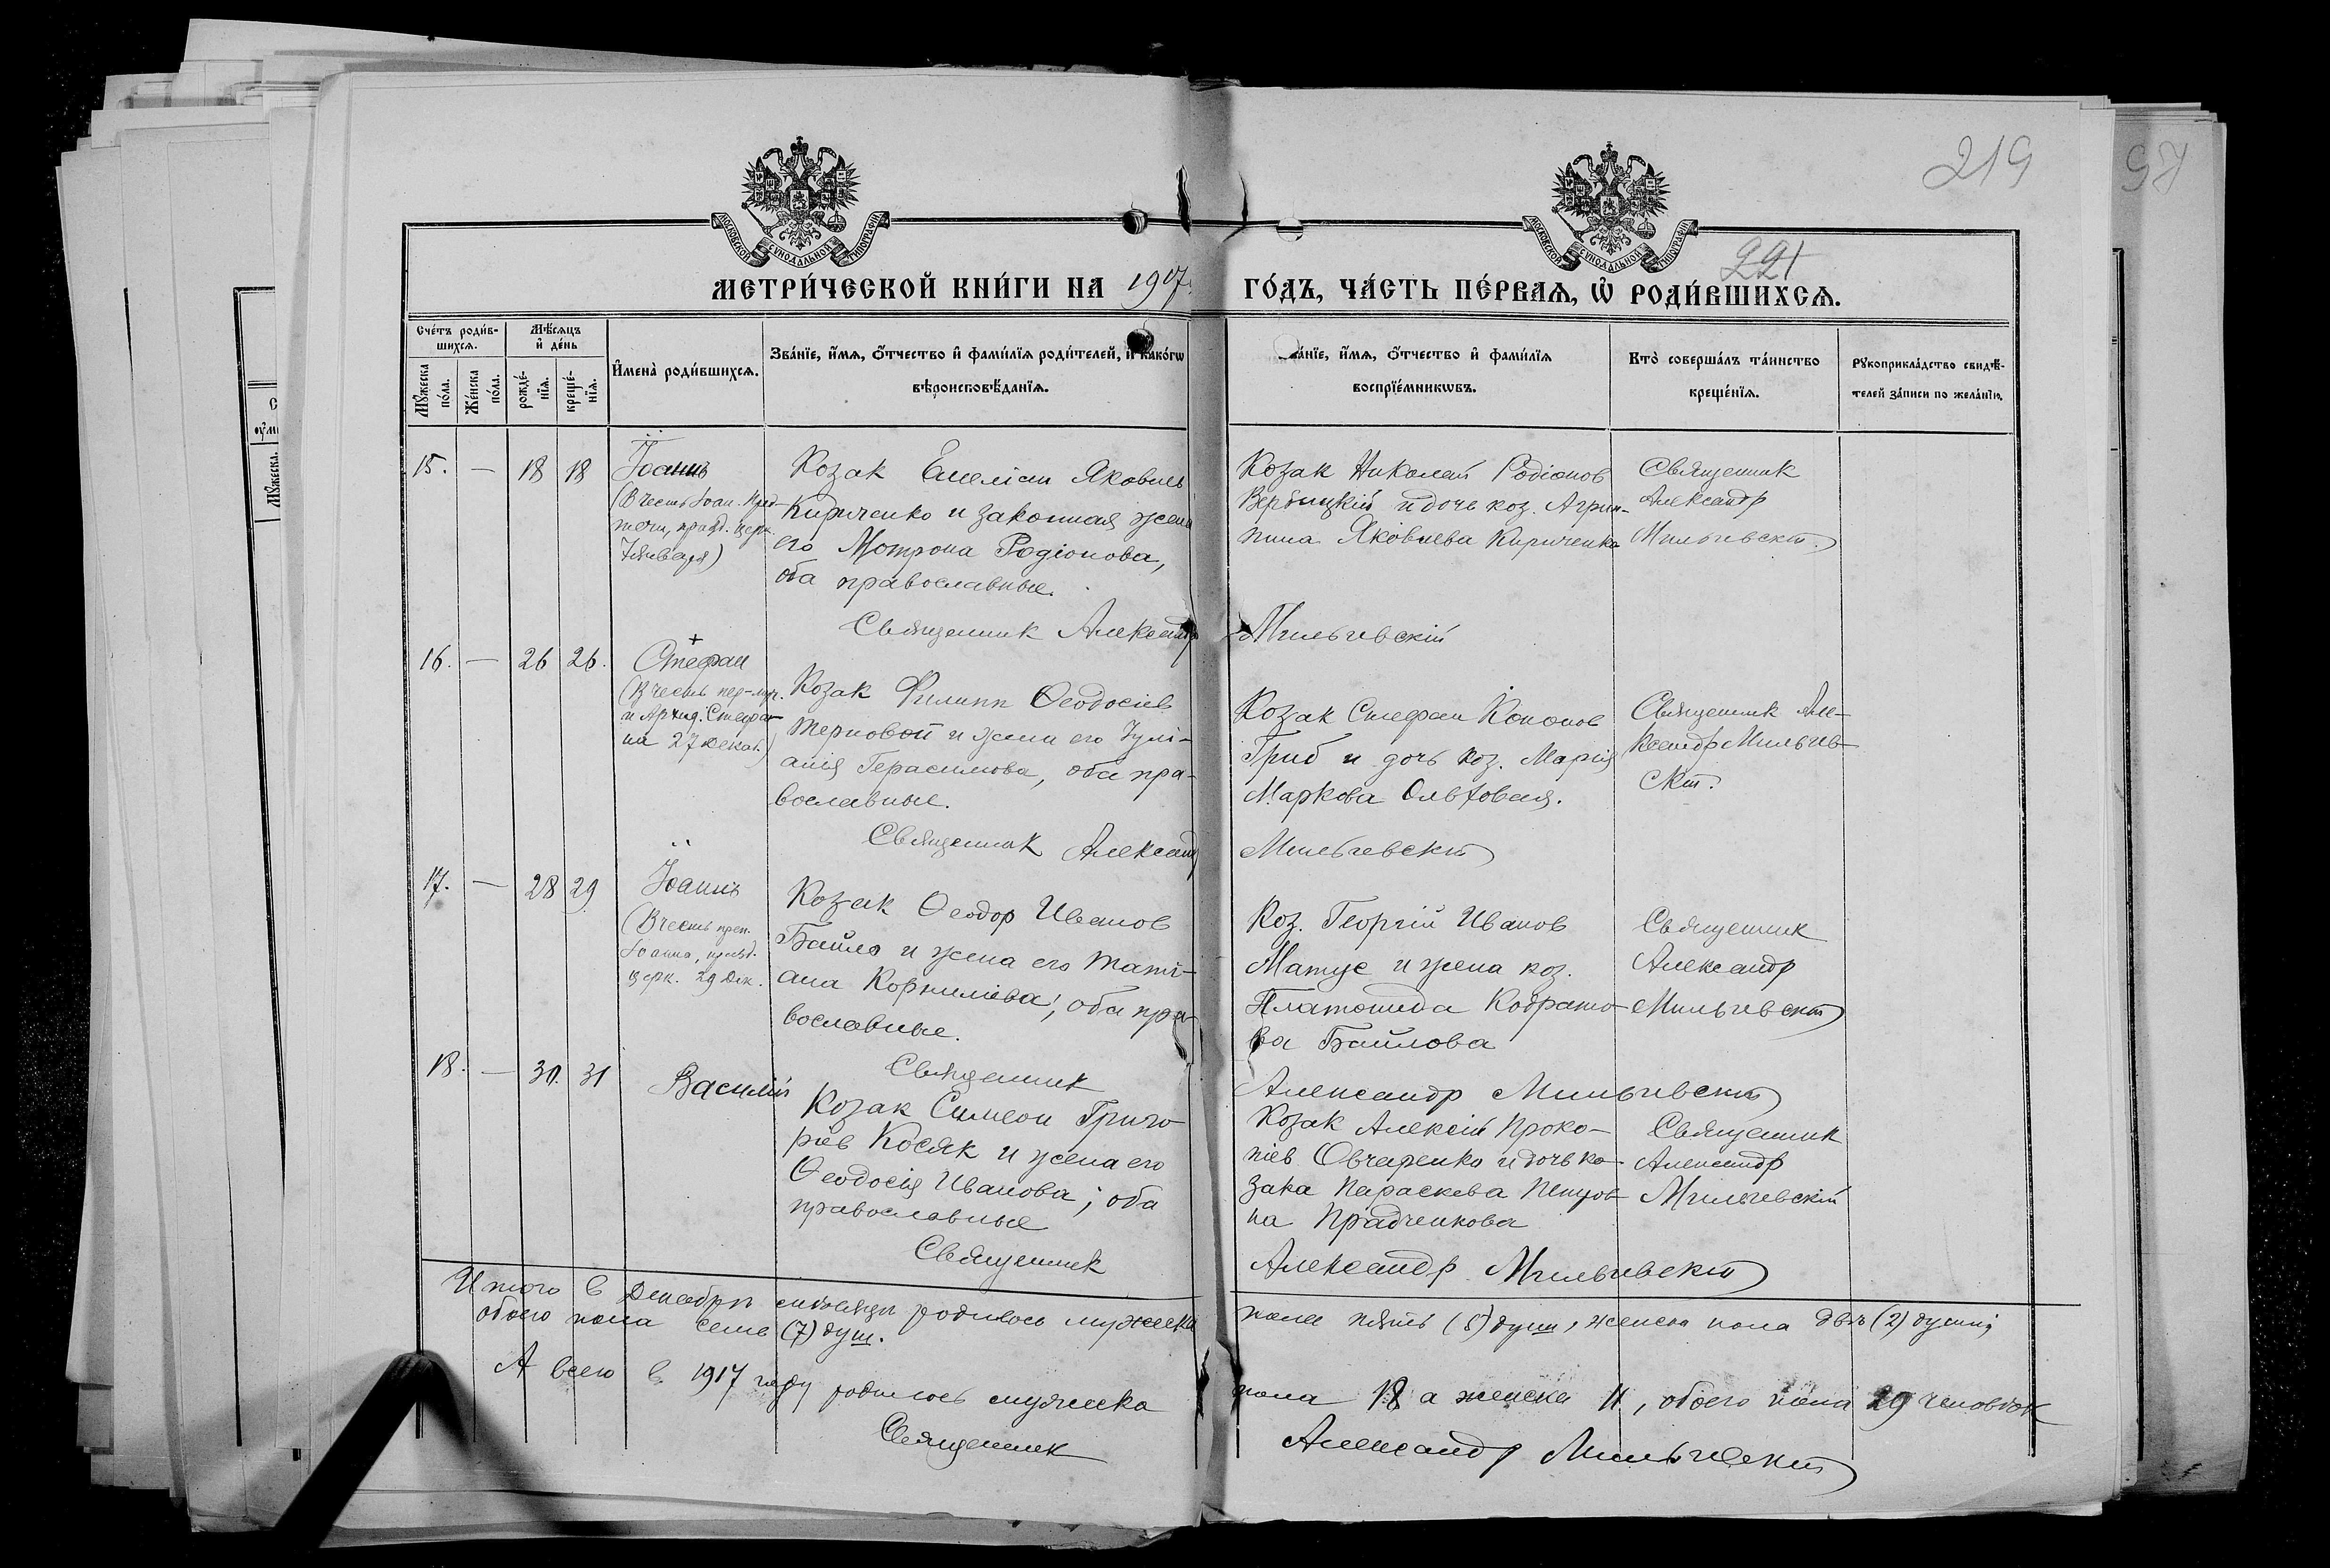 219
97
221
МОСКОВСКОЙ СѴНОДАЛЬНОЙ ТИПОГРАФІИ
МОСКОВСКОЙ СѴНОДАЛЬНОЙ ТИПОГРАФІИ
МЕТРИ́ЧЕСКОЙ КНИ́ГИ НА 1917
ГО́ДЪ, ЧА́СТЬ ПЕ́РВАѦ, Ѡ҆ РОДИ́ВШИХСѦ.
Сче́тъ роди́в-
шихсѧ.
Мꙋ́жеска
по́ла.
Же́нска
по́ла.
Мѣ́сяцъ
и҆ де́нь
рожде́-
нїѧ.
креще́-
нїѧ.
И҆мена̀ роди́вшихсѧ.
Зва́нїе, и҆́мѧ, ѻ҆́тчество и҆ фами́лїѧ роди́телей, и҆ како́гѡ
вѣроисповѣ́данїѧ.
ва́нїе, и҆́мѧ, ѻ҆́тчество и҆ фами́лїѧ
воспрїе́мникѡвъ.
Кто̀ соверша́лъ та́инство
креще́нїѧ.
Рꙋкоприкла́дство свидѣ́-
телей за́писи по жела́нїю.
15. — 18 18 Іоаннъ
(В честь Іоан. Пред-
течи, празд. церк.
7 января)
Козак Емеліан Яковлев
Кириченко и законная жена
его Мотрона Родіонова,
оба православные.
Козак Николай Родіонов
Вербицкій и дочь коз. Агрип-
пина Яковлева Кириченко
Священник
Александр
Мильчевскій
Священник Александр Мильчевскій
16. — 26 26. Стефан
(В честь пер-муч.
и Архид. Стефа-
на 27 декаб.)
Козак Филипп Ѳеодосіев
Терновой и жена его Іулі-
анія Герасимова, оба пра-
вославные.
Козак Стефан Кононов
Гриб и дочь коз. Марія
Маркова Ольховая.
Священник Але-
ксандр Мильчев-
скій.
Священник Александр Мильчевскій
17. — 28 29 Іоаннъ
(В честь преп.
Іоанна, празд.
церк. 29 Дек.
Козак Ѳеодор Иванов
Байло и жена его Таті-
ана Корнилієва; оба пра-
вославные.
Коз. Георгій Иванов
Матус и жена коз.
Платонида Кодрато-
ва Байлова
Священник
Александр
Мильчевскій
Священник Александр Мильчевскій
18. — 30. 31 Василій
Козак Симеон Григо-
ріев Косяк и жена его
Ѳеодосія Иванова; оба
православные
Козак Алексій Проко-
піев Овчаренко и дочь ко-
зака Параскева
на Прадченкова
Священник
Александр
Мильчевскій
Священник Александр Мильчевскій
Итого в Декабрѣ мѣсяцѣ родилось мужеска пола пять (5) душ, женска пола двѣ (2) души,
обоего пола семь (7) душ.
А всего в 1917 году родилось мужеска пола 18 а женска 11, обоего пола 29 человѣк
Священник Александр Мильчевскій